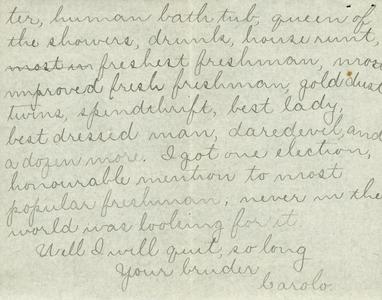 ter, human bath tub, queen of
the showers, drunk, house runt,
most in freshest freshman, most
improved fresh freshman, gold dust
twins, spendthrift, best lady,
best dressed man, daredevil, and
a dozen more. I got one election,
honourable mention to most
popular freshman, never in the
world was looking for it.
Well I will quit, so long
Your bruder
Carolo.